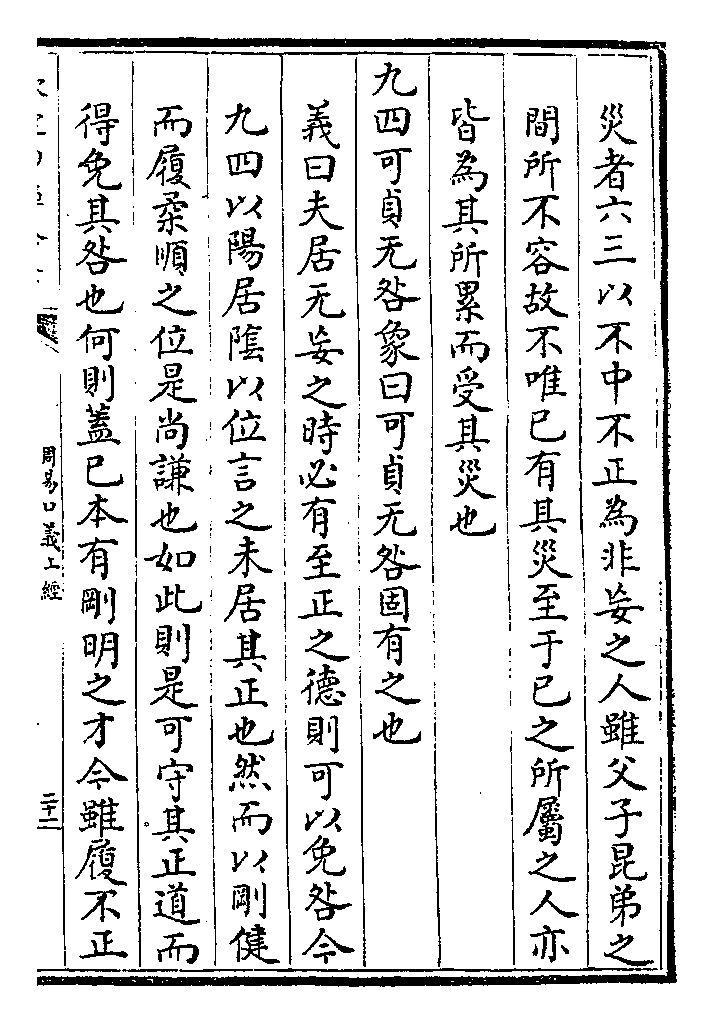 災者六三以不中不正為非妄之人雖父子昆弟之
間所不容故不唯已有其災至于已之所屬之人亦
皆為其所累而受其災也
九四可貞无咎象曰可貞无咎固有之也
義曰夫居无妄之時必有至正之德則可以免咎今
九四以陽居隂以位言之未居其正也然而以剛健
而履柔順之位是尚謙也如此則是可守其正道而
得免其咎也何則蓋已本有剛明之才今雖履不正
周易口義上經
二十二